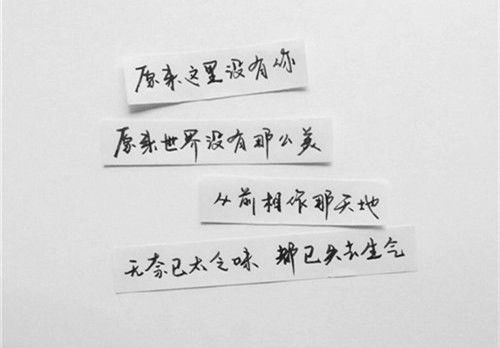 原来这里没有你
原来世界没有那么美
从前相依那天地
无奈已太乏味 都已失去生气